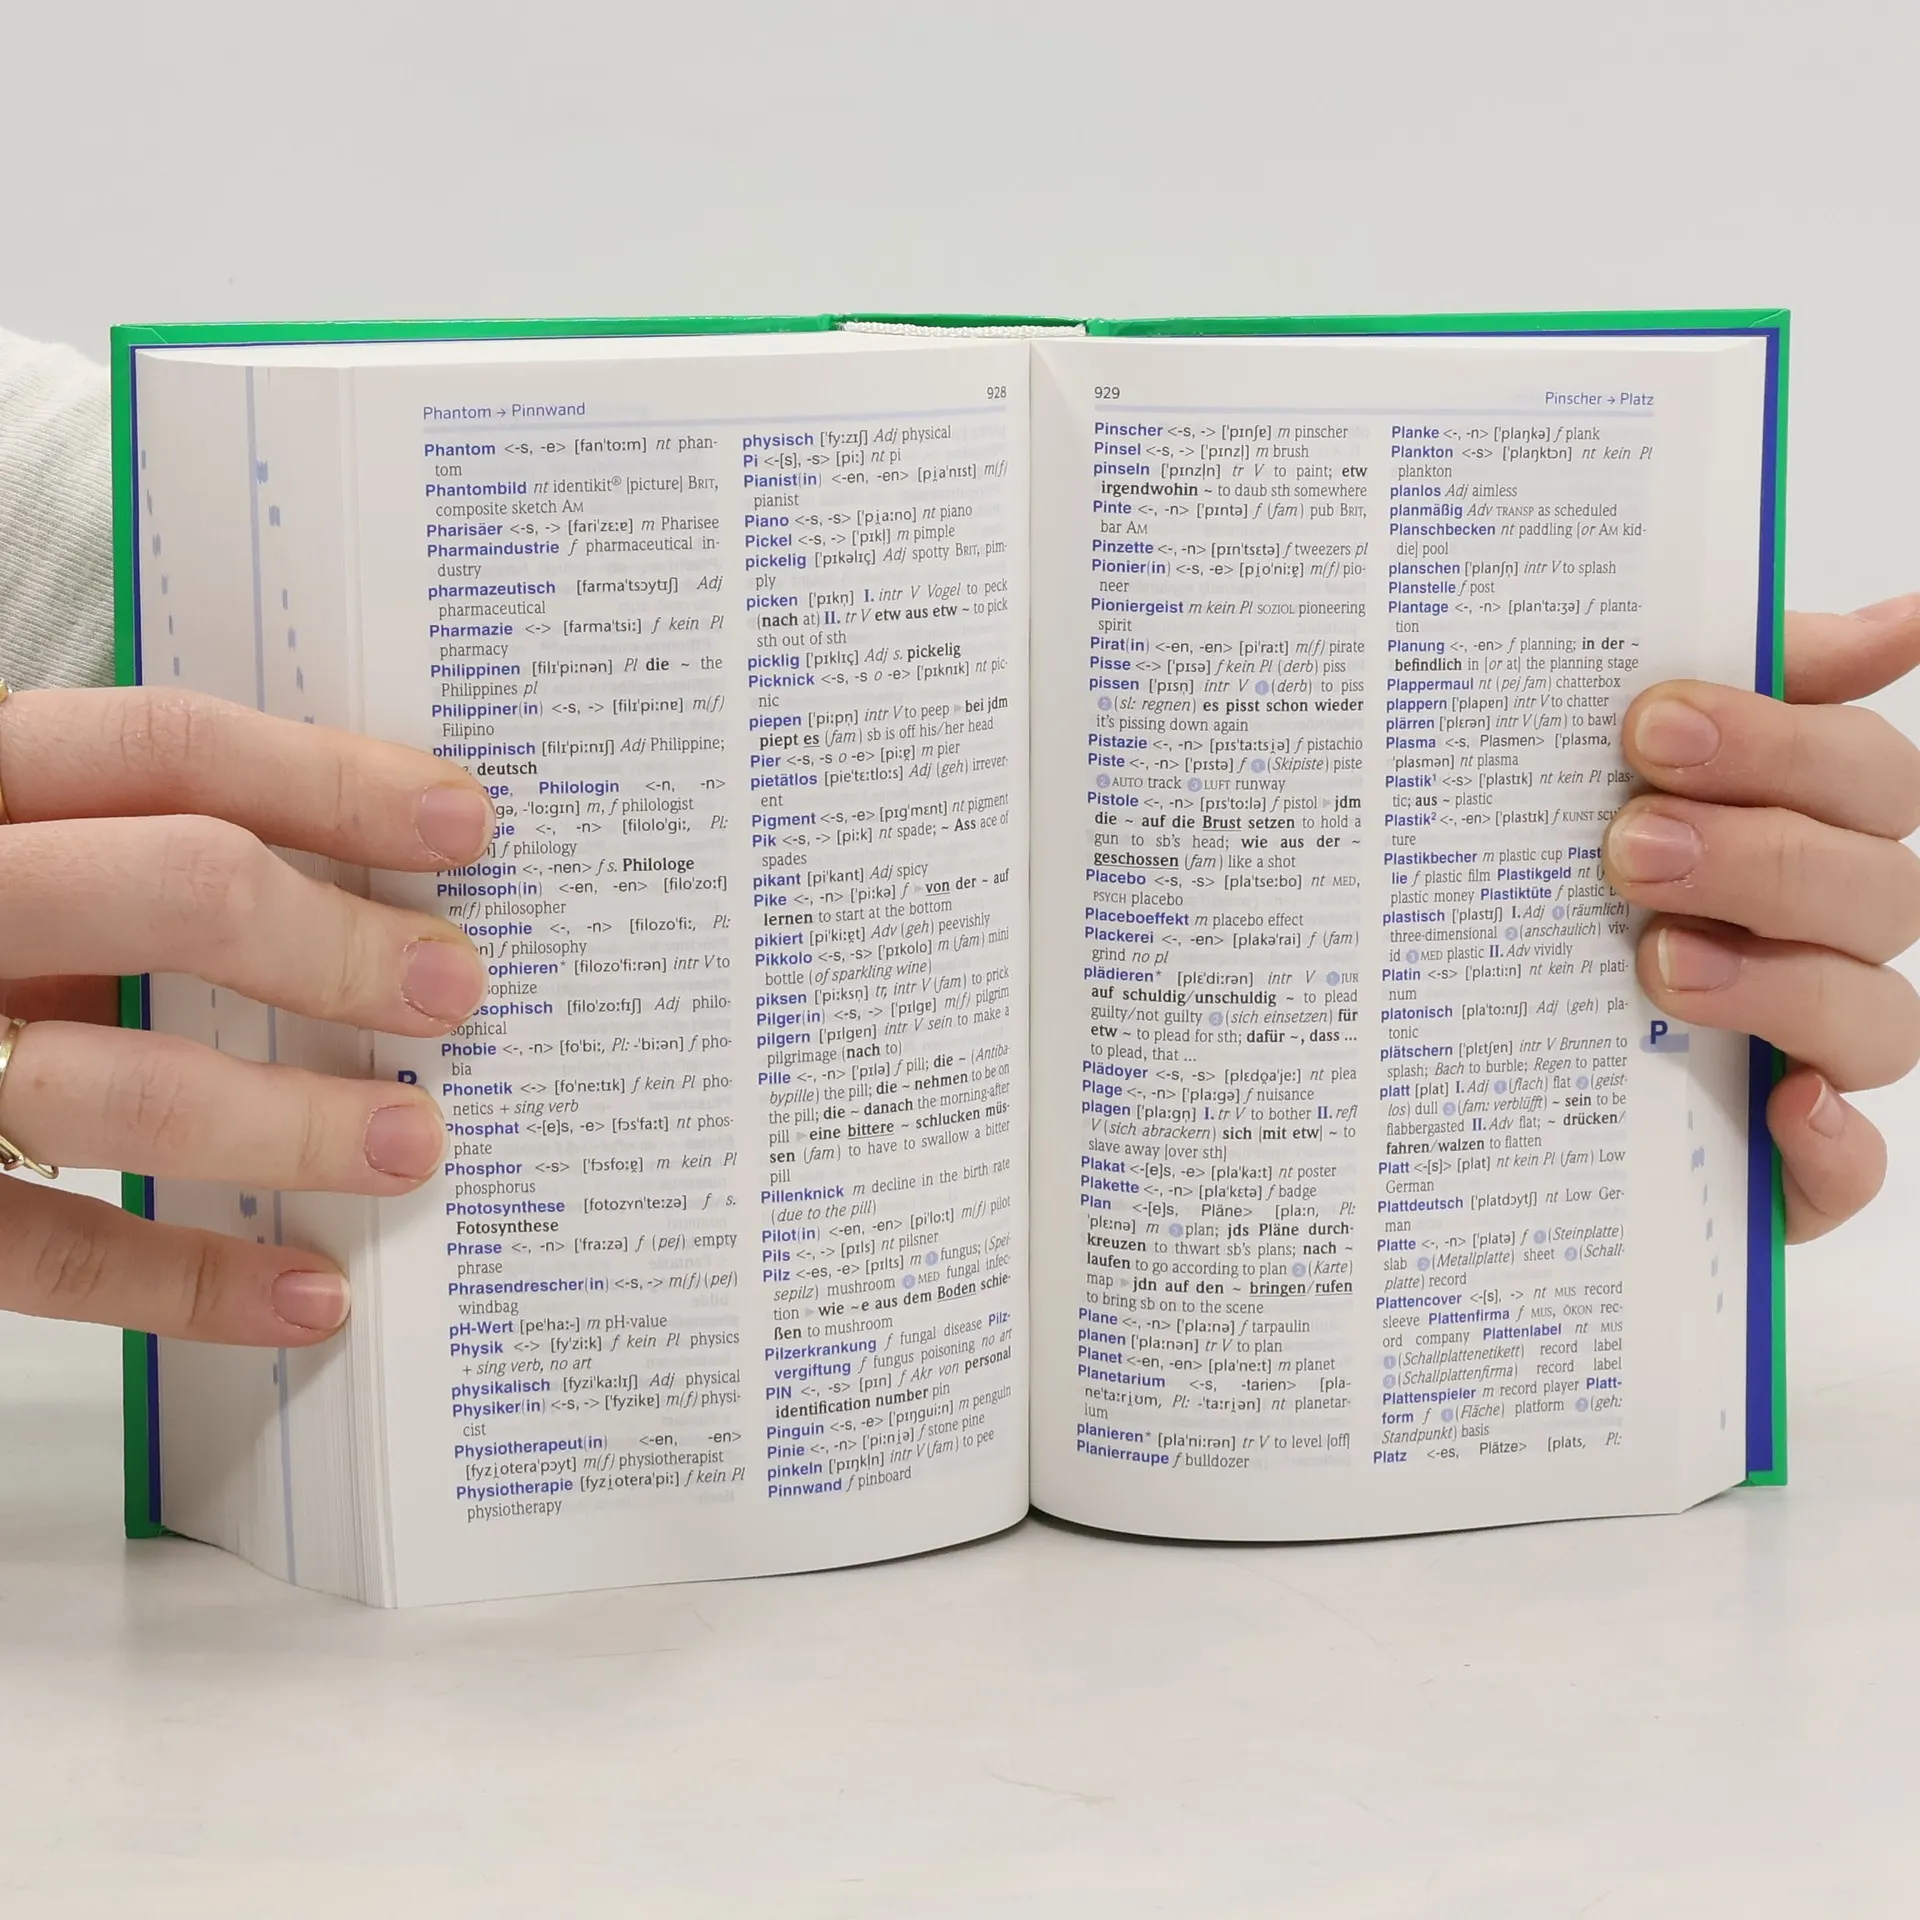 Phantom → Pinnwand
928
Phantom <-s, -e> [fan'to:m] nt phan-
tom
Phantombild nt identikit® [picture] BRIT,
composite sketch AM
Pharisäer <-s, -> [fari'zɛ:ɐ] m Pharisee
Pharmaindustrie f pharmaceutical in-
dustry
pharmazeutisch [farma'tsɔytɪʃ] Adj
pharmaceutical
Pharmazie <-> [farma'tsi:] f kein Pl
pharmacy
Philippinen [filɪ'pi:nən] Pl die ~ the
Philippines pl
Philippiner(in) <-s, -> [filɪ'pi:nɐ] m(f)
Filipino
philippinisch [filɪ'pi:nɪʃ] Adj Philippine;
deutsch
Philologin <-n, -n>
-'lo:gɪn] m, f philologist
<-, -n> [filolo'gi:, Pl:
f philology
<-, -nen> f s. Philologe
Philosoph(in) <-en, -en> [filo'zo:f]
m(f) philosopher
<-, -n> [filozo'fi:, Pl:
f philosophy
[filozo'fi:rən] intr V to
[filo'zo:fɪʃ] Adj philo-
sophical
Phobie <-, -n> [fo'bi:, Pl: -'bi:ən] f pho-
bia
Phonetik <-> [fo'ne:tɪk] f kein Pl pho-
netics + sing verb
Phosphat <-[e]s, -e> [fɔs'fa:t] nt phos-
phate
Phosphor <-s> ['fɔsfo:ɐ̯] m kein Pl
phosphorus
Photosynthese [fotozyn'te:zə] f s.
Fotosynthese
Phrase <-, -n> ['fra:zə] f (pej) empty
phrase
Phrasendrescher(in) <-s, -> m(f) (pej)
windbag
pH-Wert [pe'ha:-] m pH-value
Physik <-> [fy'zi:k] f kein Pl physics
+ sing verb, no art
physikalisch [fyzi'ka:lɪʃ] Adj physical
Physiker(in) <-s, -> ['fyzikɐ] m(f) physi-
cist
Physiotherapeut(in) <-en, -en>
[fyzi̯otera'pɔyt] m(f) physiotherapist
Physiotherapie [fyzi̯otera'pi:] f kein Pl
physiotherapy
physisch ['fy:zɪʃ] Adj physical
Pi <-[s], -s> [pi:] nt pi
Pianist(in) <-en, -en> [pi̯a'nɪst] m(f)
pianist
Piano <-s, -s> ['pi̯a:no] nt piano
Pickel <-s, -> ['pɪkl̩] m pimple
pickelig ['pɪkəlɪç] Adj spotty BRIT, pim-
ply
picken ['pɪkn̩] I. intr V Vogel to peck
(nach at) II. tr V etw aus etw ~ to pick
sth out of sth
picklig ['pɪklɪç] Adj s. pickelig
Picknick <-s, -s o -e> ['pɪknɪk] nt pic-
nic
piepen ['pi:pn̩] intr V to peep ▸ bei jdm
piept es (fam) sb is off his/her head
Pier <-s, -s o -e> [pi:ɐ̯] m pier
pietätlos [pie'tɛ:tlo:s] Adj (geh) irrever-
ent
Pigment <-s, -e> [pɪg'mɛnt] nt pigment
Pik <-s, -> [pi:k] nt spade; ~ Ass ace of
spades
pikant [pi'kant] Adj spicy
Pike <-, -n> ['pi:kə] f ▸ von der ~ auf
lernen to start at the bottom
pikiert [pi'ki:ɐ̯t] Adv (geh) peevishly
Pikkolo <-s, -s> ['pɪkolo] m (fam) mini
bottle (of sparkling wine)
piksen ['pi:ksn̩] tr, intr V (fam) to prick
Pilger(in) <-s, -> ['pɪlgɐ] m(f) pilgrim
pilgern ['pɪlgɐn] intr V sein to make a
pilgrimage (nach to)
Pille <-, -n> ['pɪlə] f pill; die ~ (Antiba-
bypille) the pill; die ~ nehmen to be on
the pill; die ~ danach the morning-after
pill ▸ eine bittere ~ schlucken müs-
sen (fam) to have to swallow a bitter
pill
Pillenknick m decline in the birth rate
(due to the pill)
Pilot(in) <-en, -en> [pi'lo:t] m(f) pilot
Pils <-, -> [pɪls] nt pilsner
Pilz <-es, -e> [pɪlts] m ❶ fungus; (Spei-
sepilz) mushroom ❷ MED fungal infec-
tion ▸ wie ~e aus dem Boden schie-
ßen to mushroom
Pilzerkrankung f fungal disease Pilz-
vergiftung f fungus poisoning no art
PIN <-, -s> [pɪn] f Akr von personal
identification number pin
Pinguin <-s, -e> ['pɪŋgui:n] m penguin
Pinie <-, -n> ['pi:ni̯ə] f stone pine
pinkeln ['pɪŋkl̩n] intr V (fam) to pee
Pinnwand f pinboard
929
Pinscher → Platz
Pinscher <-s, -> ['pɪnʃɐ] m pinscher
Pinsel <-s, -> ['pɪnzl̩] m brush
pinseln ['pɪnzl̩n] tr V to paint; etw
irgendwohin ~ to daub sth somewhere
Pinte <-, -n> ['pɪntə] f (fam) pub BRIT,
bar AM
Pinzette <-, -n> [pɪn'tsɛtə] f tweezers pl
Pionier(in) <-s, -e> [pi̯o'ni:ɐ̯] m(f) pio-
neer
Pioniergeist m kein Pl SOZIOL pioneering
spirit
Pirat(in) <-en, -en> [pi'ra:t] m(f) pirate
Pisse <-> ['pɪsə] f kein Pl (derb) piss
pissen ['pɪsn̩] intr V ❶ (derb) to piss
❷ (sl: regnen) es pisst schon wieder
it's pissing down again
Pistazie <-, -n> [pɪs'ta:tsi̯ə] f pistachio
Piste <-, -n> ['pɪstə] f ❶ (Skipiste) piste
❷ AUTO track ❸ LUFT runway
Pistole <-, -n> [pɪs'to:lə] f pistol ▸ jdm
die ~ auf die Brust setzen to hold a
gun to sb's head; wie aus der ~
geschossen (fam) like a shot
Placebo <-s, -s> [pla'tse:bo] nt MED,
PSYCH placebo
Placeboeffekt m placebo effect
Plackerei <-, -en> [plakə'rai] f (fam)
grind no pl
plädieren* [plɛ'di:rən] intr V ❶ JUR
auf schuldig/unschuldig ~ to plead
guilty/not guilty ❷ (sich einsetzen) für
etw ~ to plead for sth; dafür ~, dass ...
to plead, that ...
Plädoyer <-s, -s> [plɛdo̯a'je:] nt plea
Plage <-, -n> ['pla:gə] f nuisance
plagen ['pla:gn̩] I. tr V to bother II. refl
V (sich abrackern) sich [mit etw] ~ to
slave away [over sth]
Plakat <-[e]s, -e> [pla'ka:t] nt poster
Plakette <-, -n> [pla'kɛtə] f badge
Plan <-[e]s, Pläne> [pla:n, Pl:
'plɛ:nə] m ❶ plan; jds Pläne durch-
kreuzen to thwart sb's plans; nach ~
laufen to go according to plan ❷ (Karte)
map ▸ jdn auf den ~ bringen/rufen
to bring sb on to the scene
Plane <-, -n> ['pla:nə] f tarpaulin
planen ['pla:nən] tr V to plan
Planet <-en, -en> [pla'ne:t] m planet
Planetarium <-s, -tarien> [pla-
ne'ta:ri̯ʊm, Pl: -'ta:ri̯ən] nt planetar-
ium
planieren* [pla'ni:rən] tr V to level [off]
Planierraupe f bulldozer
Planke <-, -n> ['plaŋkə] f plank
Plankton <-s> ['plaŋktɔn] nt kein Pl
plankton
planlos Adj aimless
planmäßig Adv TRANSP as scheduled
Planschbecken nt paddling [or AM kid-
die] pool
planschen ['planʃn̩] intr V to splash
Planstelle f post
Plantage <-, -n> [plan'ta:ʒə] f planta-
tion
Planung <-, -en> f planning; in der ~
befindlich in [or at] the planning stage
Plappermaul nt (pej fam) chatterbox
plappern ['plapɐn] intr V to chatter
plärren ['plɛrən] intr V (fam) to bawl
Plasma <-s, Plasmen> ['plasma,
'plasmən] nt plasma
Plastik¹ <-s> ['plastɪk] nt kein Pl plas-
tic; aus ~ plastic
Plastik² <-, -en> ['plastɪk] f KUNST
ture
Plastikbecher m plastic cup
f plastic film Plastikgeld nt
plastic money Plastiktüte f plastic
plastisch ['plastɪʃ] I. Adj ❶ (räumlich)
three-dimensional ❷ (anschaulich) viv-
id ❸ MED plastic II. Adv vividly
Platin <-s> ['pla:ti:n] nt kein Pl plati-
num
platonisch [pla'to:nɪʃ] Adj (geh) pla-
tonic
plätschern ['plɛtʃɐn] intr V Brunnen to
splash; Bach to burble; Regen to patter
platt [plat] I. Adj ❶ (flach) flat ❷ (geist-
los) dull ❸ (fam: verblüfft) ~ sein to be
flabbergasted II. Adv flat; ~ drücken/
fahren/walzen to flatten
Platt <-[s]> [plat] nt kein Pl (fam) Low
German
Plattdeutsch ['platdɔytʃ] nt Low Ger-
man
Platte <-, -n> ['platə] f ❶ (Steinplatte)
slab ❷ (Metallplatte) sheet ❸ (Schall-
platte) record
Plattencover <-[s], -> nt MUS record
sleeve Plattenfirma f MUS, ÖKON rec-
ord company Plattenlabel nt MUS
❶ (Schallplattenetikett) record label
❷ (Schallplattenfirma) record label
Plattenspieler m record player Platt-
form f ❶ (Fläche) platform ❷ (geh:
Standpunkt) basis
Platz <-es, Plätze> [plats, Pl:
P